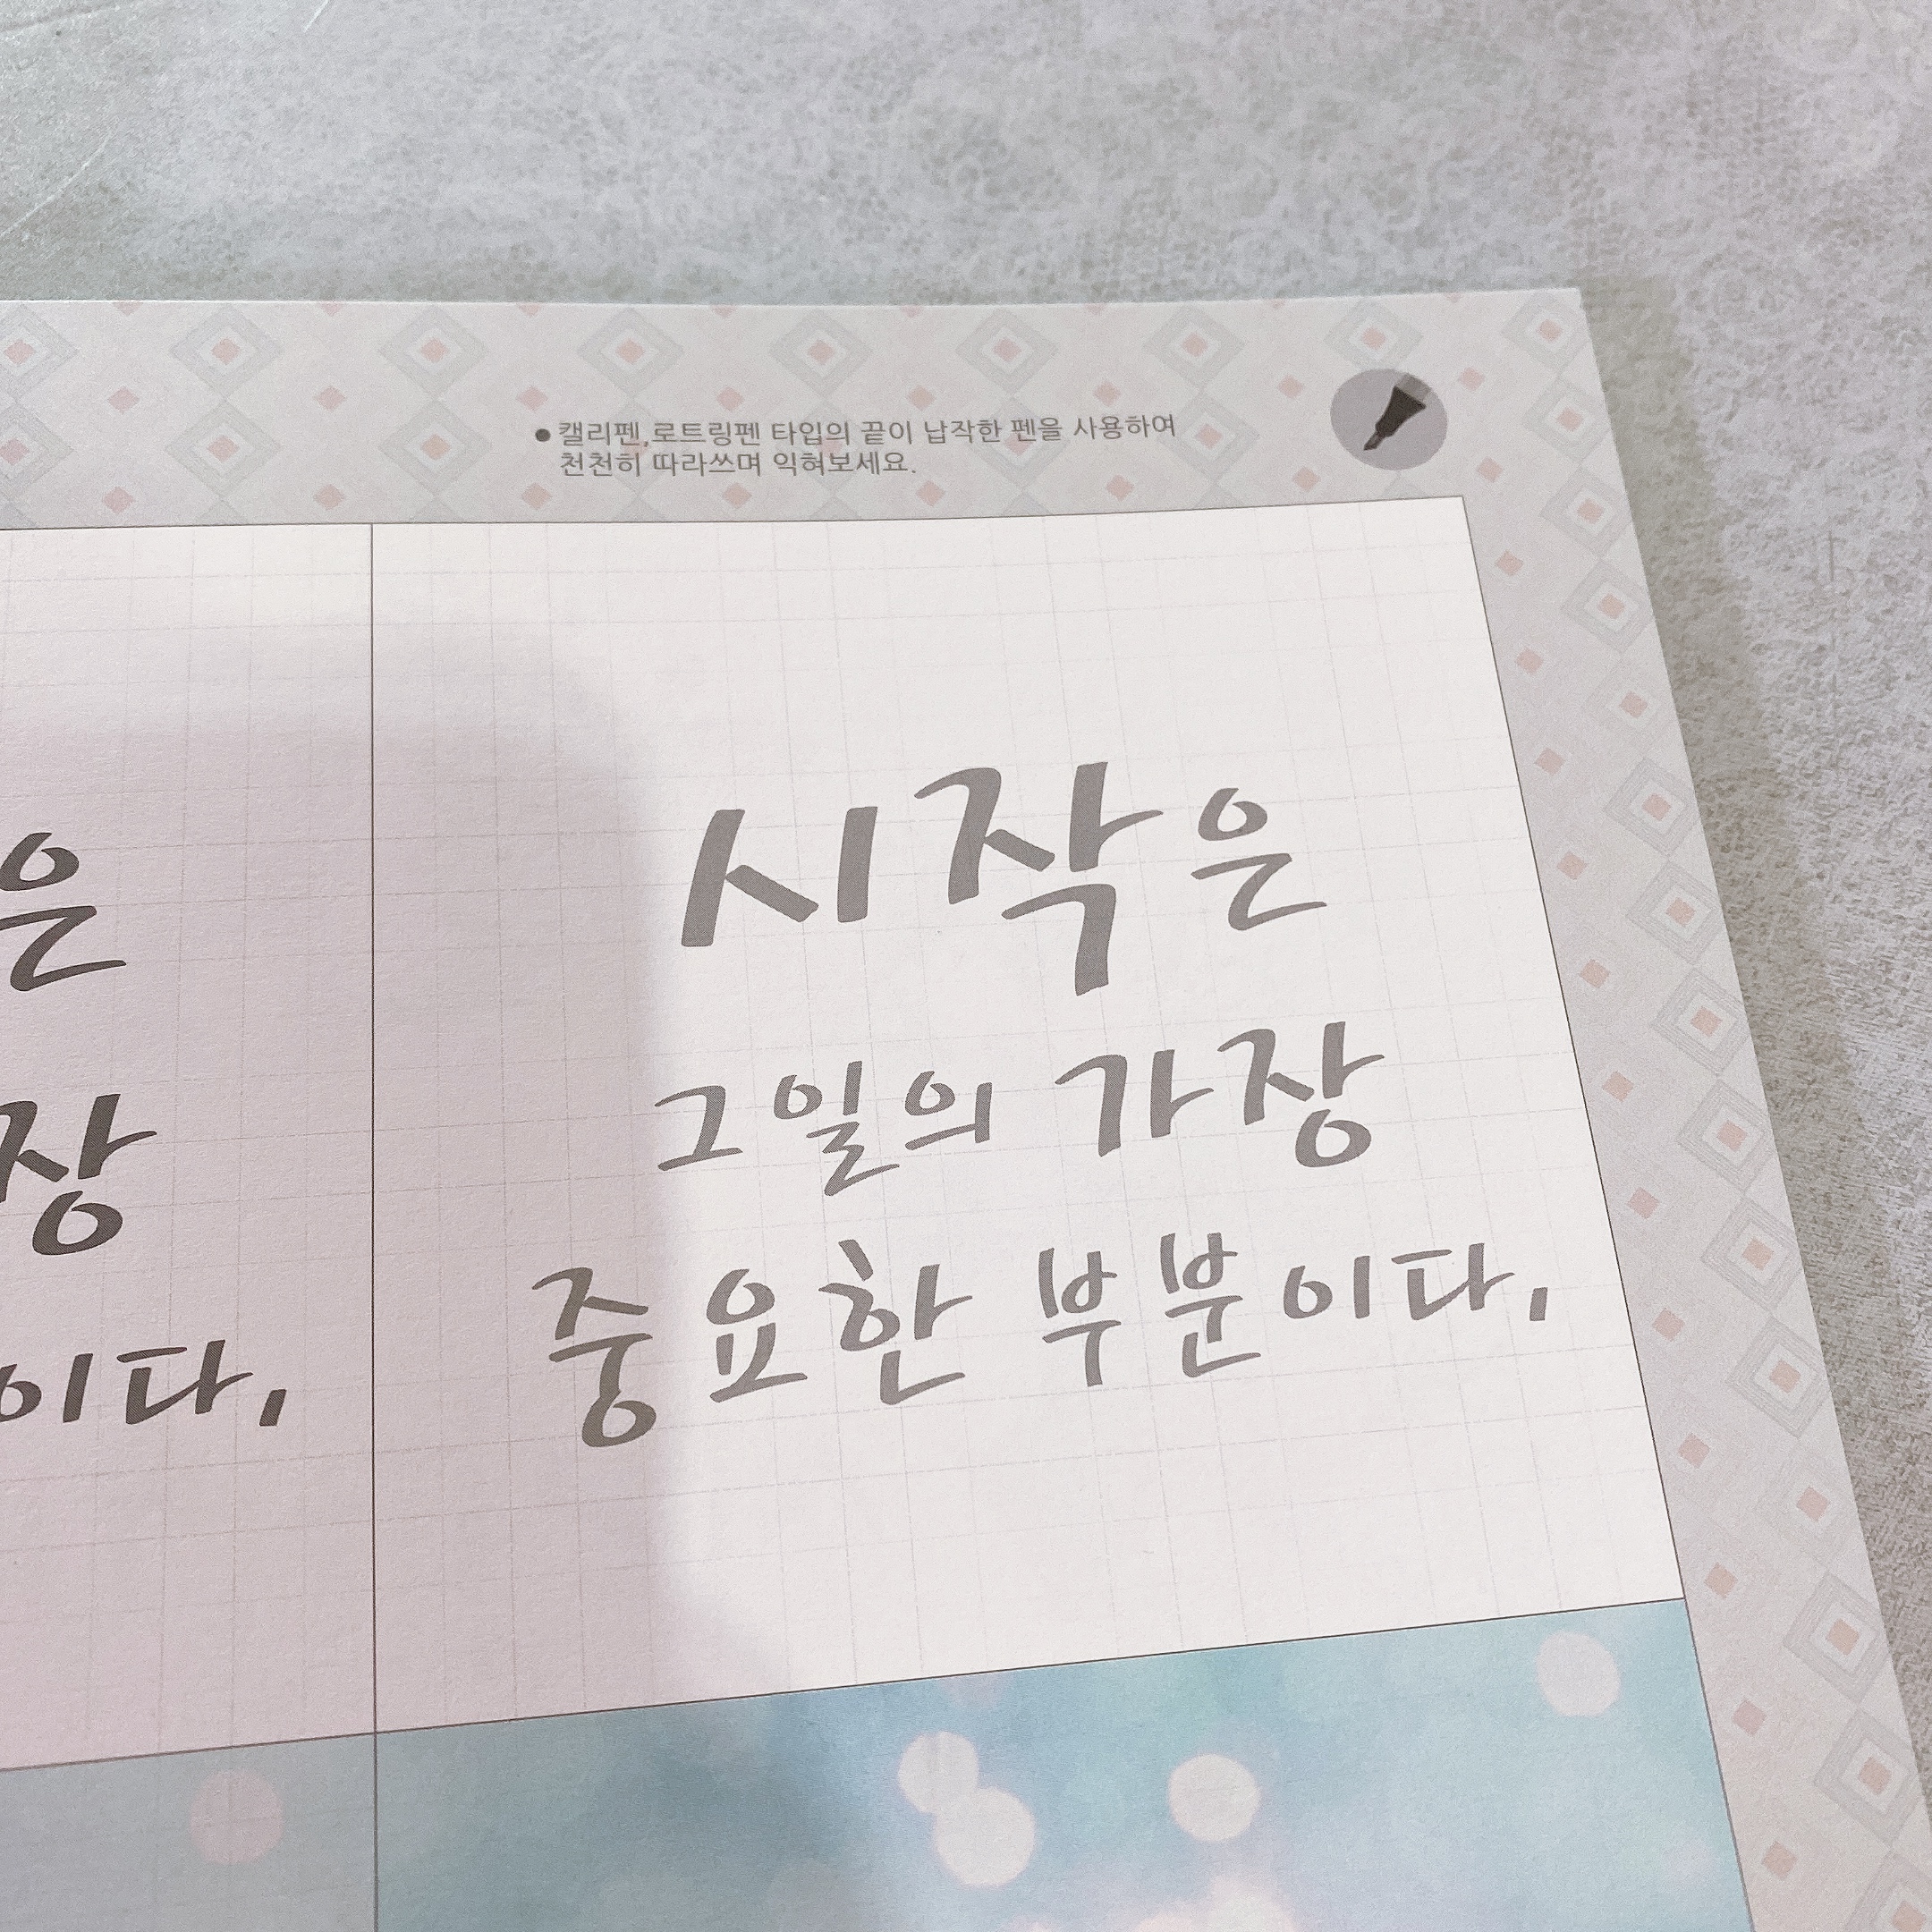 ● 캘리펜,로트링펜 타입의 끝이 납작한 펜을 사용하여
천천히 따라쓰며 익혀보세요.
은
장
이다.
시작은
그일의 가장
중요한 부분이다.